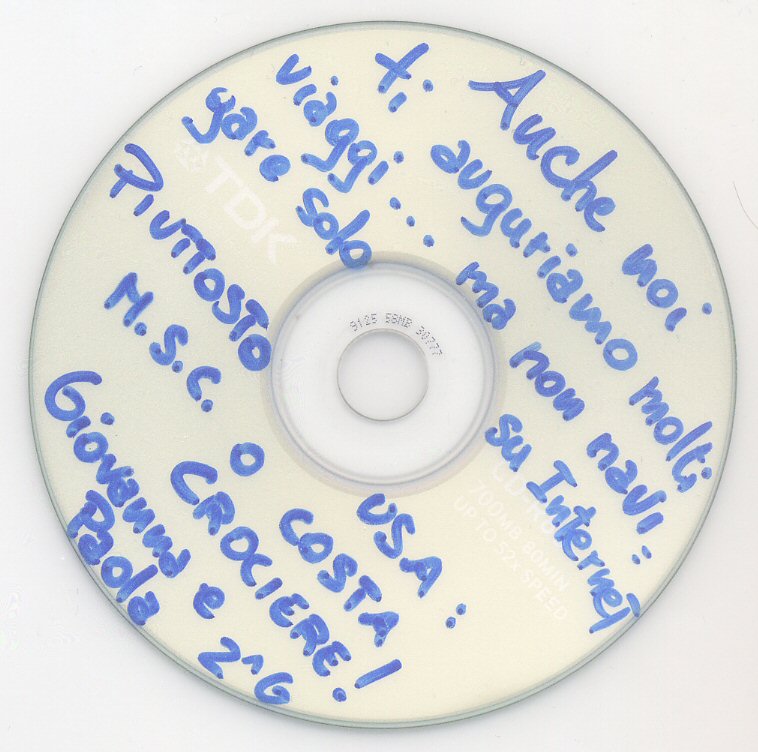 Anche noi
ti auguriamo molti
viaggi... ma non navi=
gare solo su Internet
PIUTTOSTO USA:
M.S.C. o COSTA
CROCIERE!
Giovanna e
Paola 2^G
TDK
700MB 80MIN
UP TO 52x SPEED